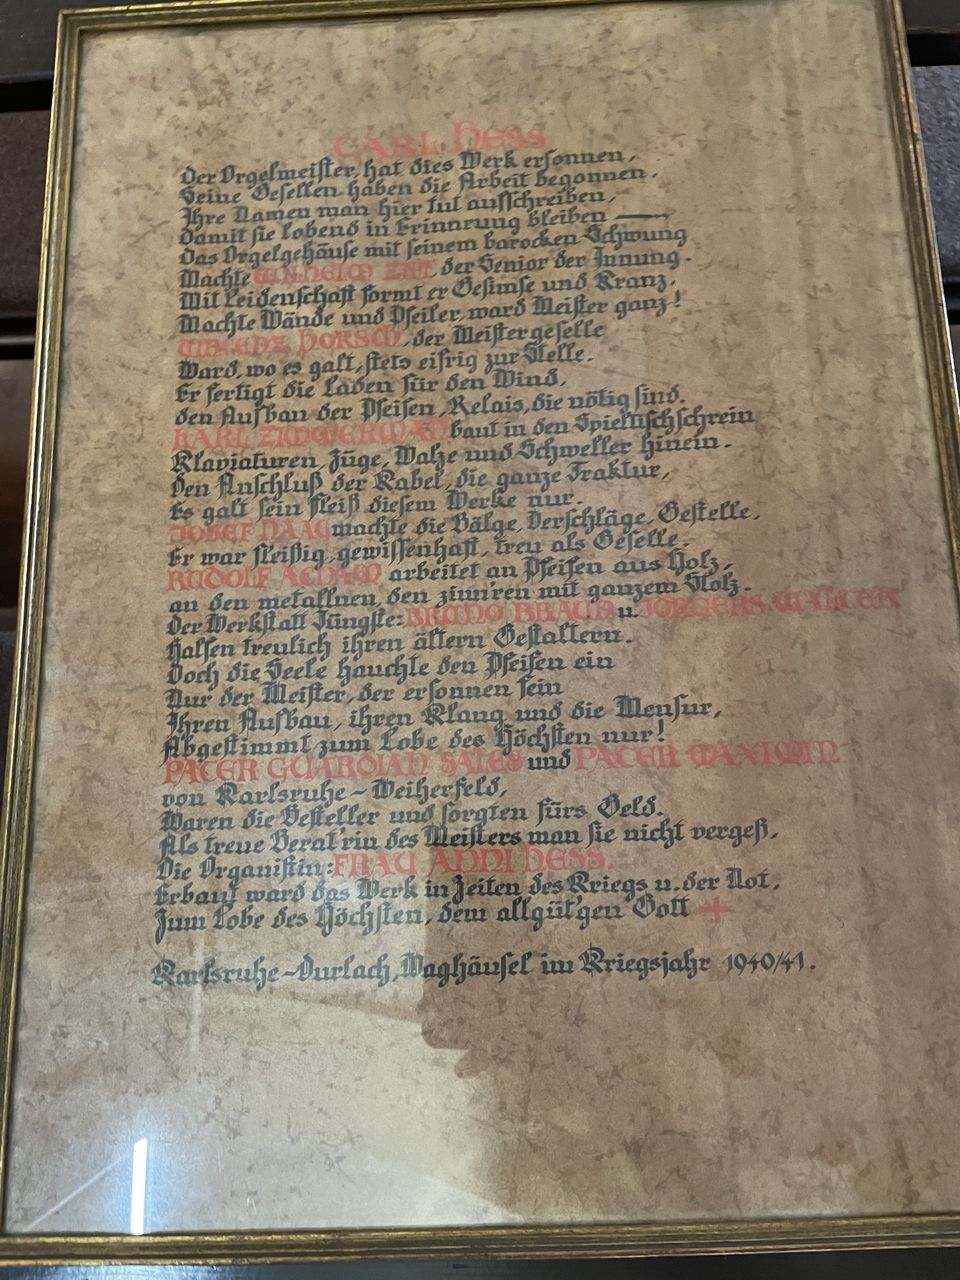 CARL HESS
Der Orgelmeister, hat dies Werk ersonnen,
Seine Gesellen haben die Arbeit begonnen.
Ihre Namen man hier tut aufschreiben,
Damit sie lobend in Erinnrung bleiben —
Das Orgelgehäuse mit seinem barocken Schwung
Machte WILHELM der Senior der Innung.
Mit Leidenschaft formt er Gesimse und Kranz,
Machte Wände und Pfeiler, ward Meister ganz!
HORSCH, der Meistergeselle
Ward, wo es galt, stets eifrig zur Stelle.
Er fertigt die Laden für den Wind,
den Aufbau der Pfeifen, Relais, die nötig sind.
KARL ZIMMERMANN baut in den Spieltischschrein
Klaviaturen, Züge, Walze und Schweller hinein.
Den Anschluß der Kabel, die ganze Traktur,
Es galt sein Fleiß diesem Werke nur.
JOSEF NAAG machte die Bälge, Verschläge, Gestelle,
Er war fleißig, gewissenhaft, treu als Geselle.
RUDOLF ACHAM arbeitet an Pfeifen aus Holz,
an den metallnen, den zinn'ren mit ganzem Stolz.
Der Werkstatt Jüngste: BRUNO BRAUN u. JÖRGERS WALTER
Halfen treulich ihren ältern Gestaltern.
Doch die Seele hauchte den Pfeifen ein
Nur der Meister, der ersonnen fein
Ihren Aufbau, ihren Klang und die Mensur,
Abgestimmt zum Lobe des Höchsten nur!
PATER GUARDIAN SALES und PATER MAXIMIN
von Karlsruhe-Weiherfeld,
Waren die Besteller und sorgten fürs Geld.
Als treue Berat'rin des Meisters man sie nicht vergeß,
Die Organistin: FRAU ANNI HESS.
Erbaut ward das Werk in Zeiten des Kriegs u. der Not,
Zum Lobe des Höchsten, dem allgüt'gen Gott +
Karlsruhe-Durlach, Waghäusel im Kriegsjahr 1940/41.